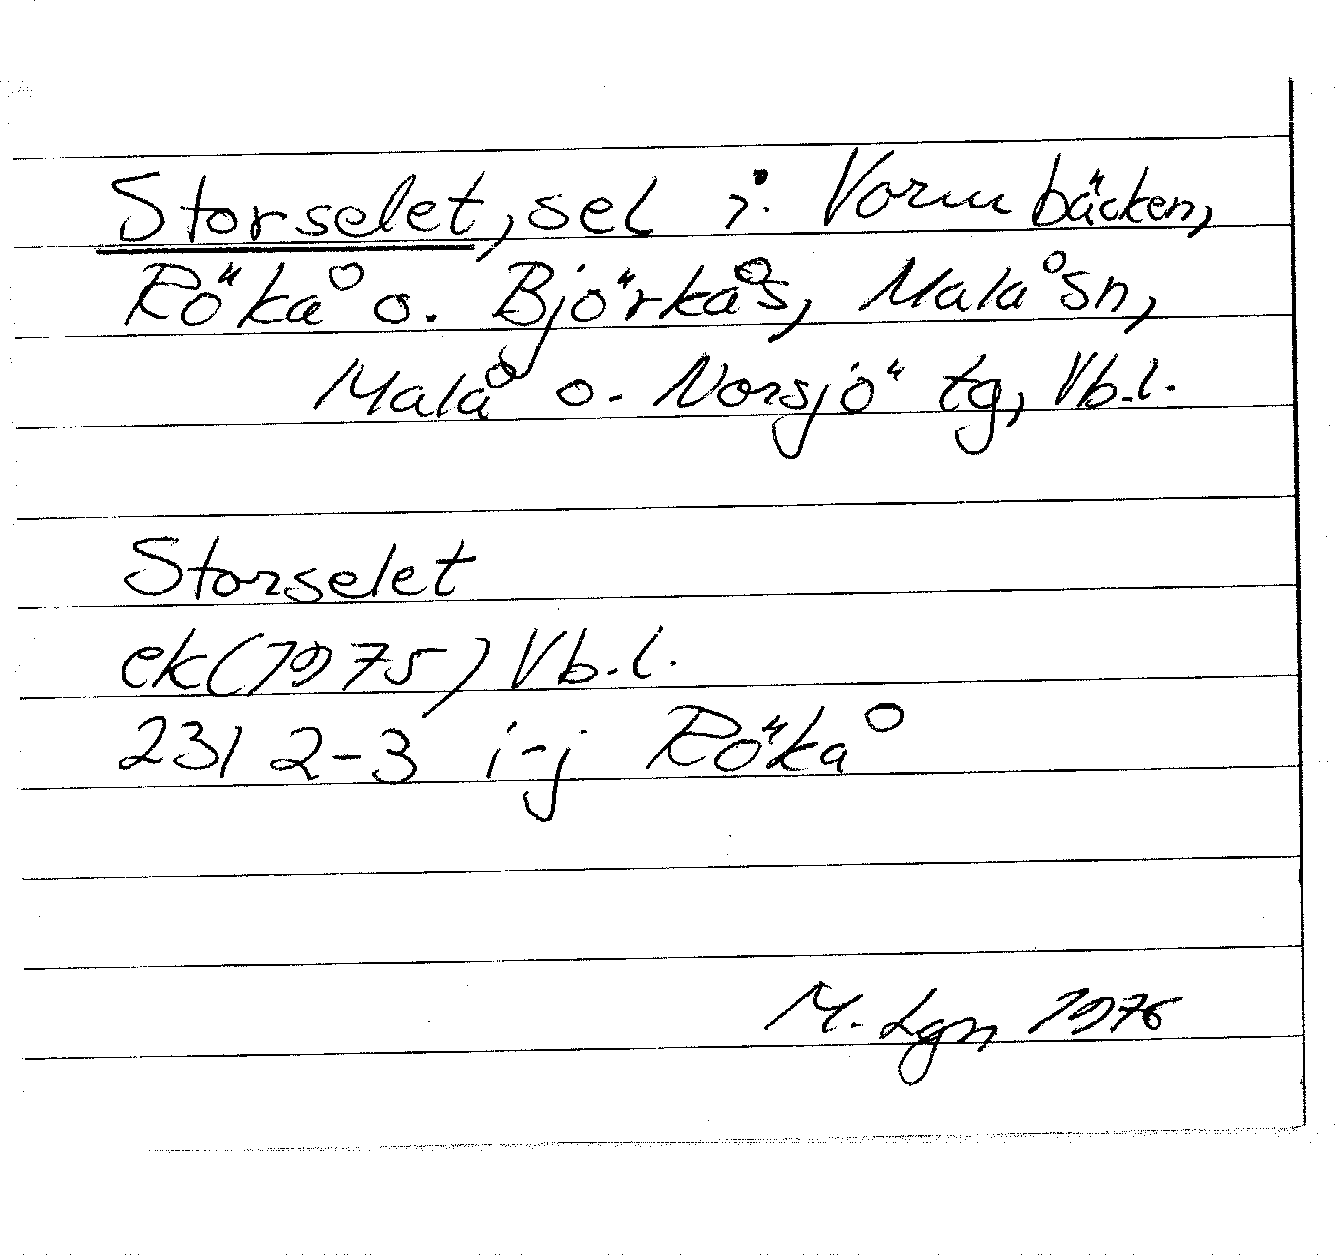 Storselet, sel i Vormbäcken,
Rökå o. Björkås, Malå sn,
Malå o. Norsjö tg, Vb.l.
Storselet
ek(1975) Vb.l.
23I 2-3 i-j Rökå
M. Lgn 1976